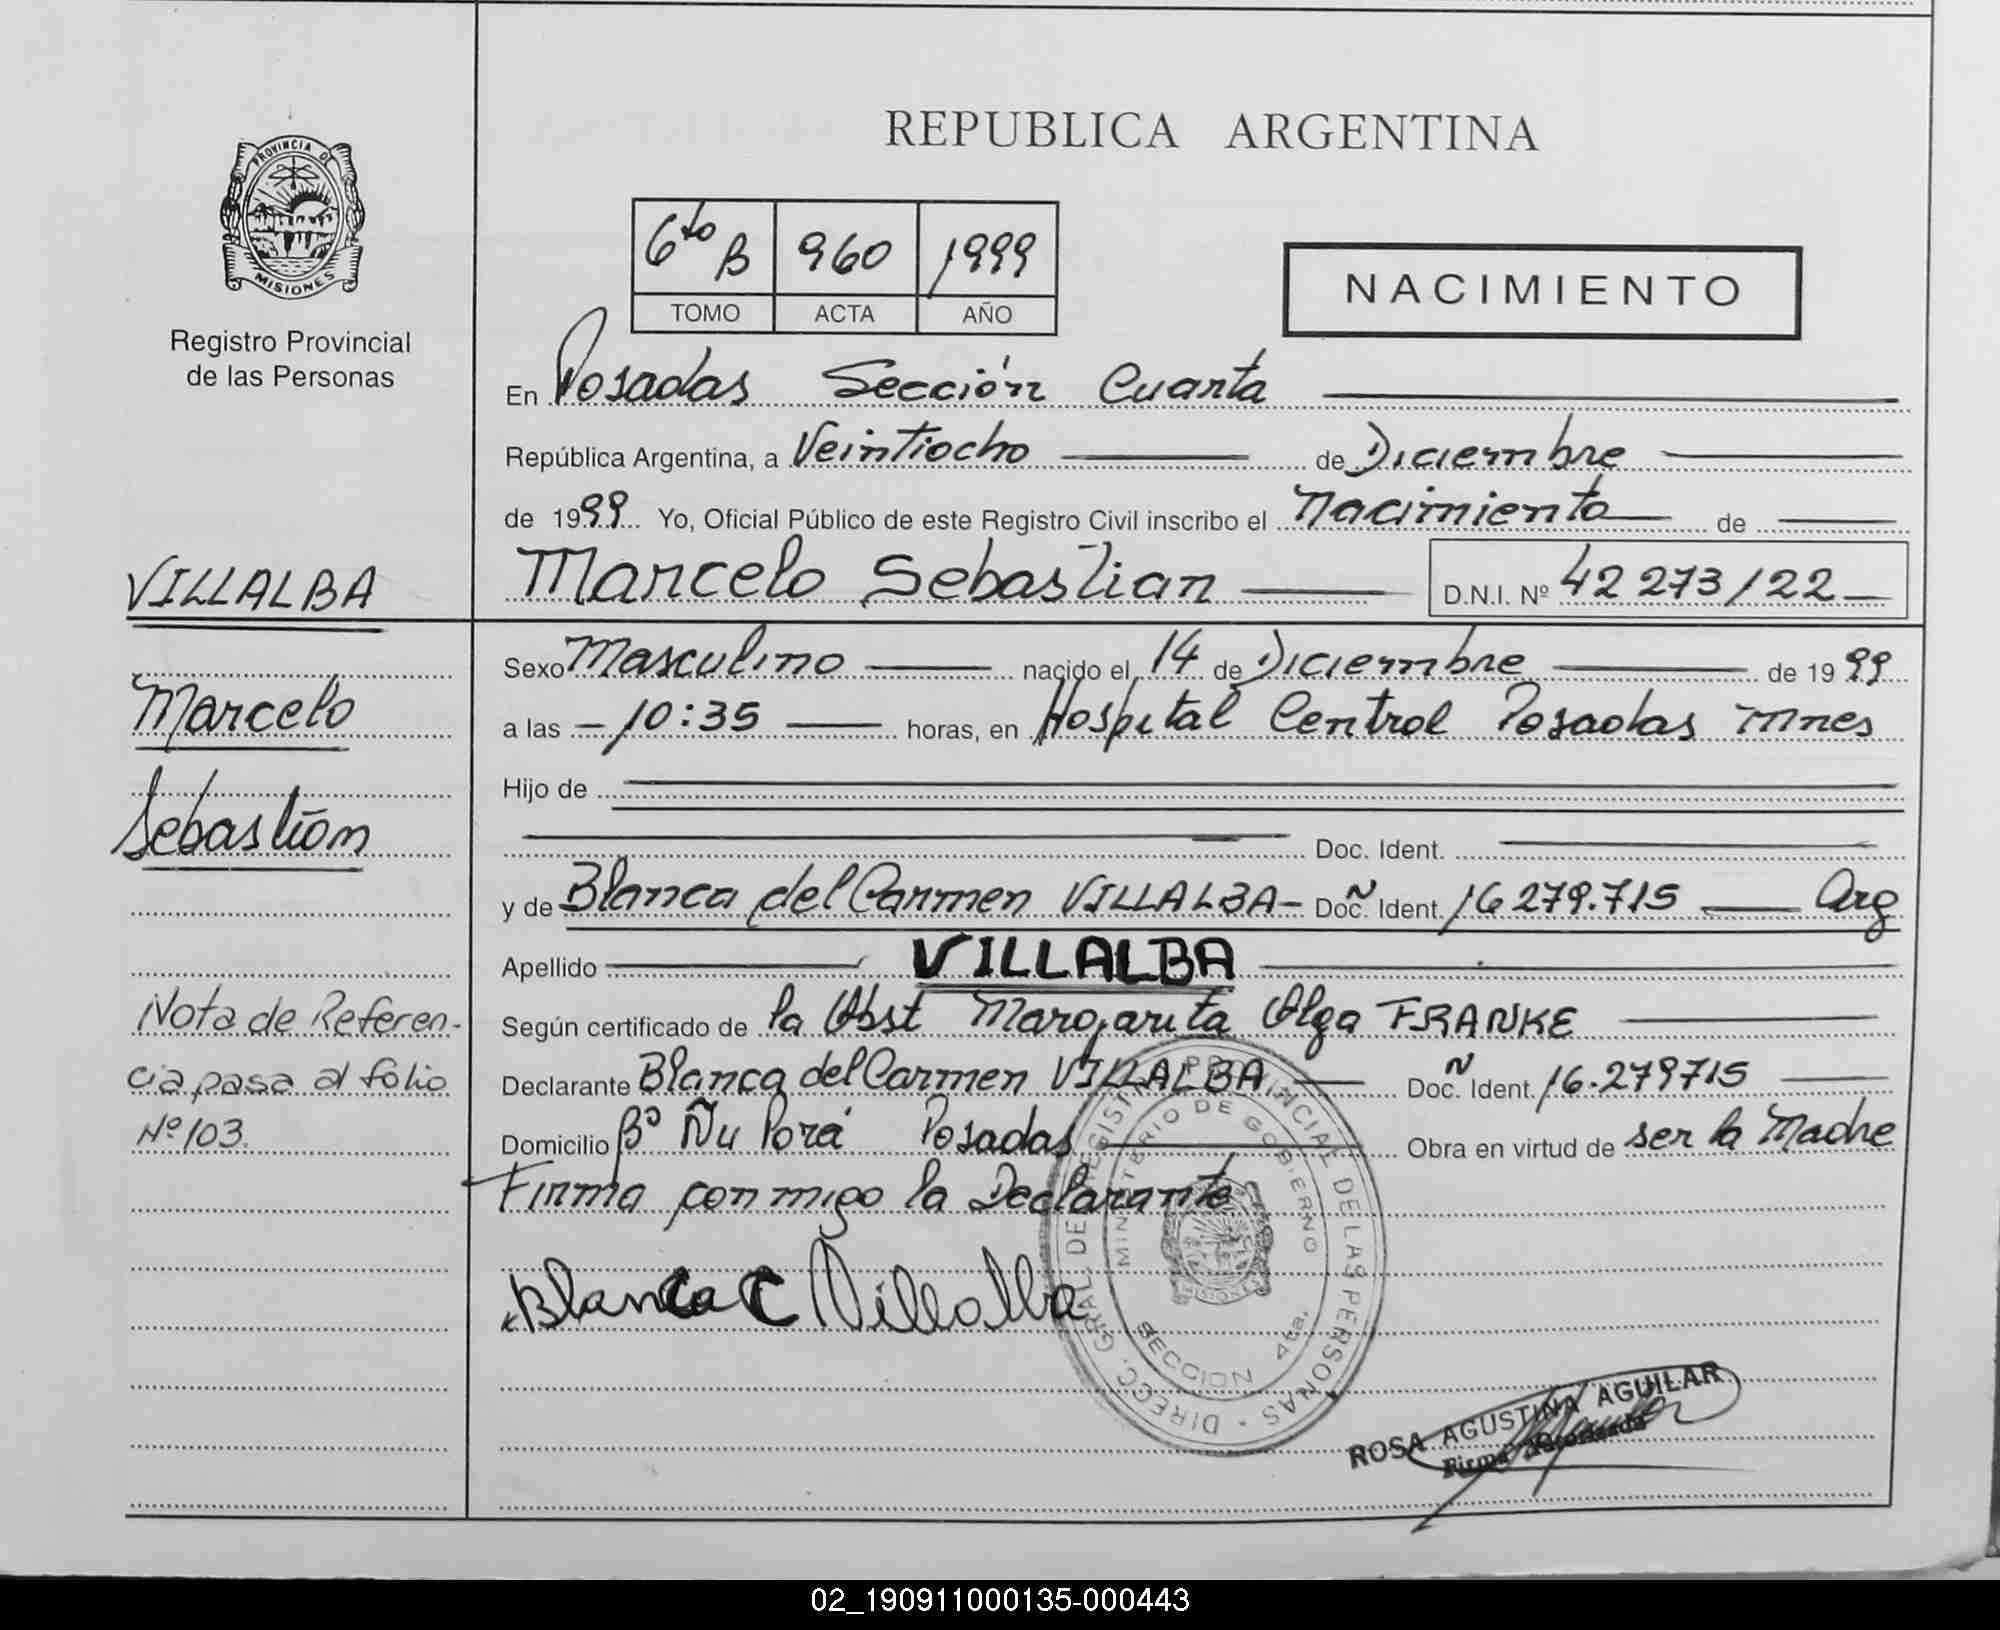 REPUBLICA ARGENTINA
PROVINCIA DE
MISIONES
Registro Provincial
de las Personas
6to B 960 1999
TOMO ACTA AÑO
NACIMIENTO
En Posadas Sección Cuarta
República Argentina, a Veintiocho de Diciembre
de 1999 Yo, Oficial Público de este Registro Civil inscribo el Nacimiento de
VILLALBA
Marcelo Sebastian D.N.I. Nº 42 273/22
Marcelo
Sebastián
Sexo Masculino nacido el 14 de Diciembre de 1999
a las 10:35 horas, en Hospital Central Posadas Mnes
Hijo de
Doc. Ident.
y de Blanca del Carmen VILLALBA Doc. Ident. 16 279.715 Arg
Apellido VILLALBA
Nota de Referen-
cia pasa al folio
Nº 103.
Según certificado de la Obst Margarita Olga FRANKE
Declarante Blanca del Carmen VILLALBA Doc. Ident. 16.279715
Domicilio Bº Ñu Porá Posadas Obra en virtud de ser la Madre
Firma conmigo la Declarante
Blanca C Villalba
DIRECC. GRAL. DE REGISTRO PROVINCIAL DE LAS PERSONAS
MINISTERIO DE GOBIERNO
MISIONES
SECCION 4ta.
ROSA AGUSTINA AGUILAR
Firma Autorizada
02_190911000135-000443